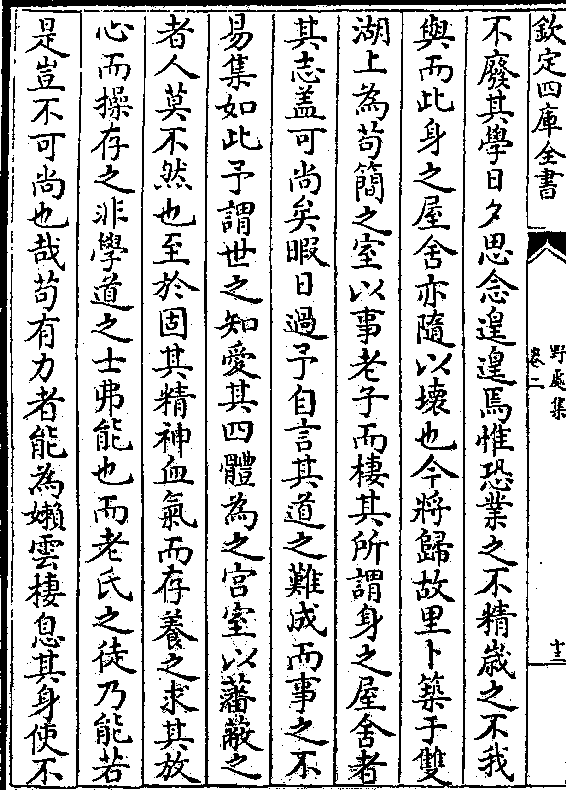 欽定四庫全書
野處集
卷二
十三
不廢其學日夕思念遑遑焉惟恐業之不精歲之不我
與而此身之屋舍亦隨以壞也今將歸故里卜築于雙
湖上為苟簡之室以事老子而棲其所謂身之屋舍者
其志盖可尚矣暇日過予自言其道之難成而事之不
易集如此予謂世之知愛其四體為之宫室以蕃蔽之
者人莫不然也至於固其精神血氣而存養之求其放
心而操存之非學道之士弗能也而老氏之徒乃能若
是豈不可尚也哉苟有力者能為嬾雲棲息其身使不